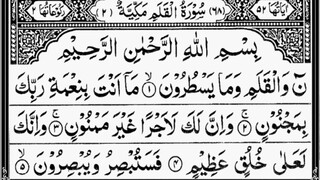 اٰيَاتُهَا ٥٢ (٦٨) سُوْرَةُ الْقَلَمِ مَكِّيَّةٌ (٢) رُكُوْعَاتُهَا ٢
بِسْمِ اللّٰهِ الرَّحْمٰنِ الرَّحِيْمِ
نٓ وَالْقَلَمِ وَمَا يَسْطُرُوْنَ ۙ﴿١﴾ مَاۤ اَنْتَ بِنِعْمَةِ رَبِّكَ
بِمَجْنُوْنٍ ۚ﴿٢﴾ وَاِنَّ لَكَ لَاَجْرًا غَيْرَ مَمْنُوْنٍ ۚ﴿٣﴾ وَاِنَّكَ
لَعَلٰى خُلُقٍ عَظِيْمٍ ﴿٤﴾ فَسَتُبْصِرُ وَيُبْصِرُوْنَ ۙ﴿٥﴾